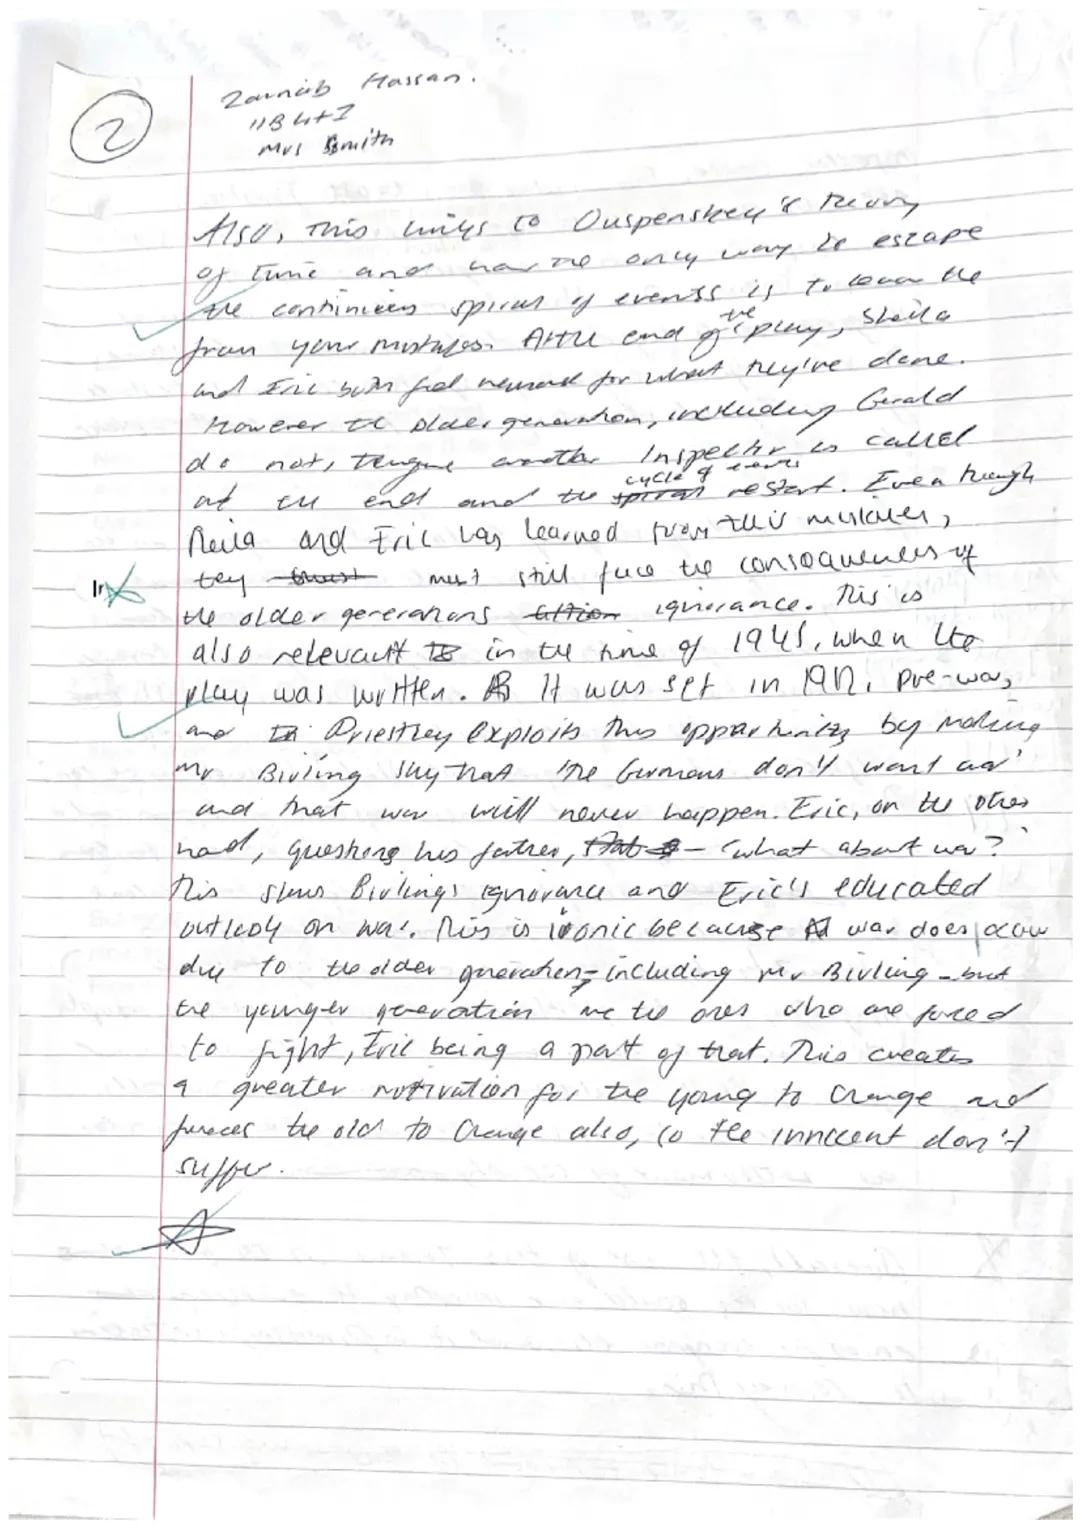 2
Zainab Hassan.
11B Lit I
Mrs Smith
Also, This links to Ouspenskey's Theory
of Time and how the only way to escape
the continious spiral of events is to learn the
from your mistakes. At the end of the play, Sheila
and Eric both feel remorse for what they've done.
However the older generation, including Gerald
do not, another Inspector is called
at the end and the spiral cycle of events restart. Even though
Sheila and Eric has learned from their mistakes,
tey must still face the consequences of
the older generations action ignorance. This is
also relevant to in the time of 1945, when the
play was written. It was set in 1912, pre-war,
and Priestley exploits this opportunity by making
Mr Birling say that 'the Germans don't want war'
and that war will never happen. Eric, on the other
hand, questions his father, - 'what about war?'
This shows Birling's ignorance and Eric's educated
outlook on war. This is ironic because war does occur
due to the older generation - including Mr Birling - but
the younger generation are the ones who are forced
to fight, Eric being a part of that. This creates
a greater motivation for the young to change and
forces the old to change also, so the innocent don't
suffer.